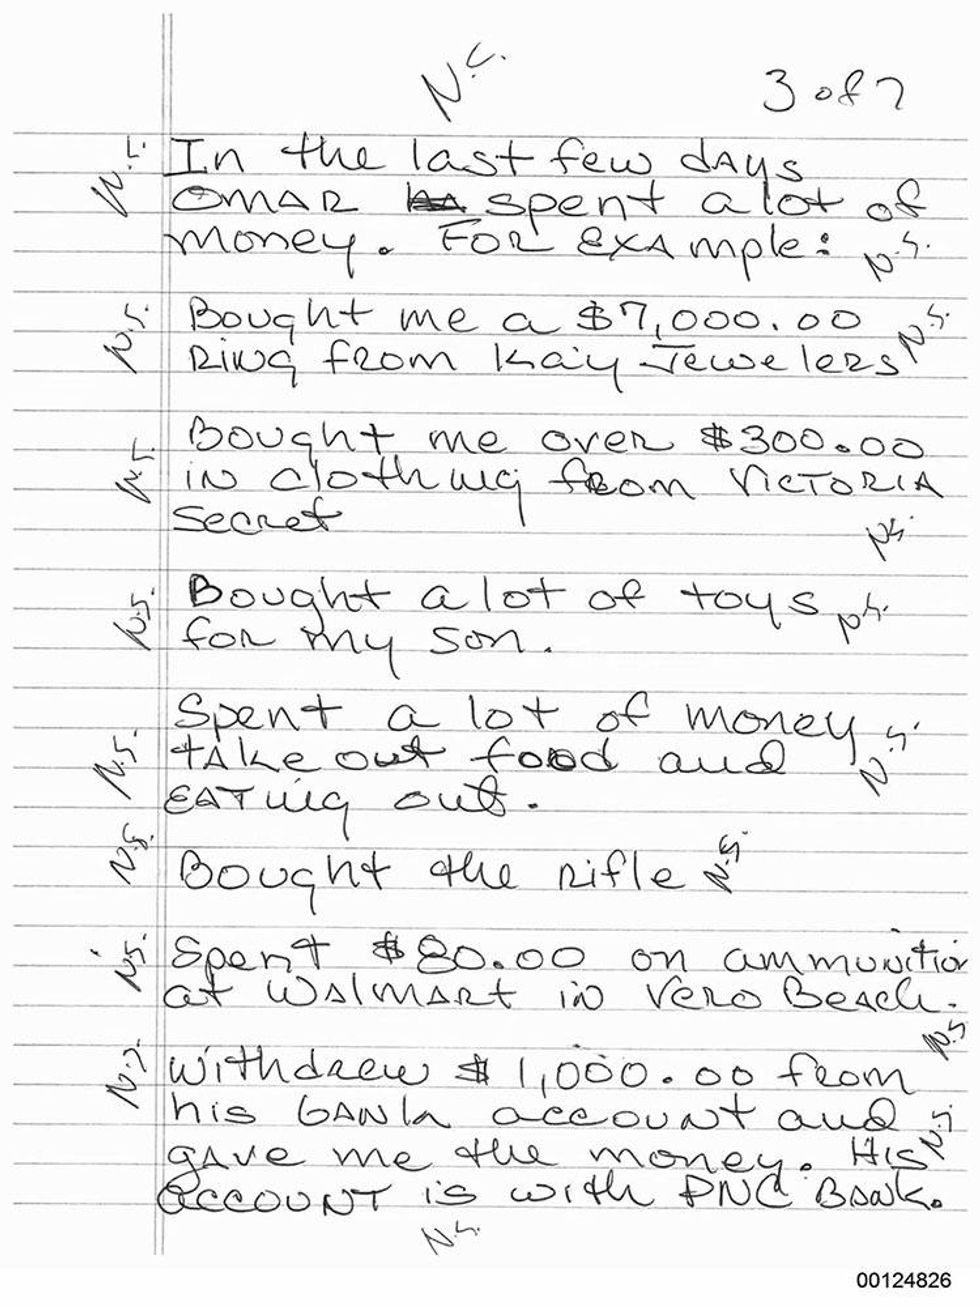 N.S. 3 of 7
N.S. In the last few days
OMAR spent a lot of
money. FOR EXAmple: N.S.
N.S. Bought me a $7,000.00 N.S.
RING from Kay Jewelers
Bought me over $300.00
N.S. in clothing from VICTORIA
Secret
N.S.
Bought a lot of toys N.S.
N.S. for my son.
Spent a lot of money N.S.
N.S. take out food and
EATing out.
N.S. Bought the rifle N.S.
N.S. Spent $80.00 on ammunition
at WAlmART in Vero Beach.
N.S.
N.S. Withdrew $1,000.00 from
his bank account and N.S.
gave me the money. His
ACCOUNT is with PNC Bank.
N.S.
00124826